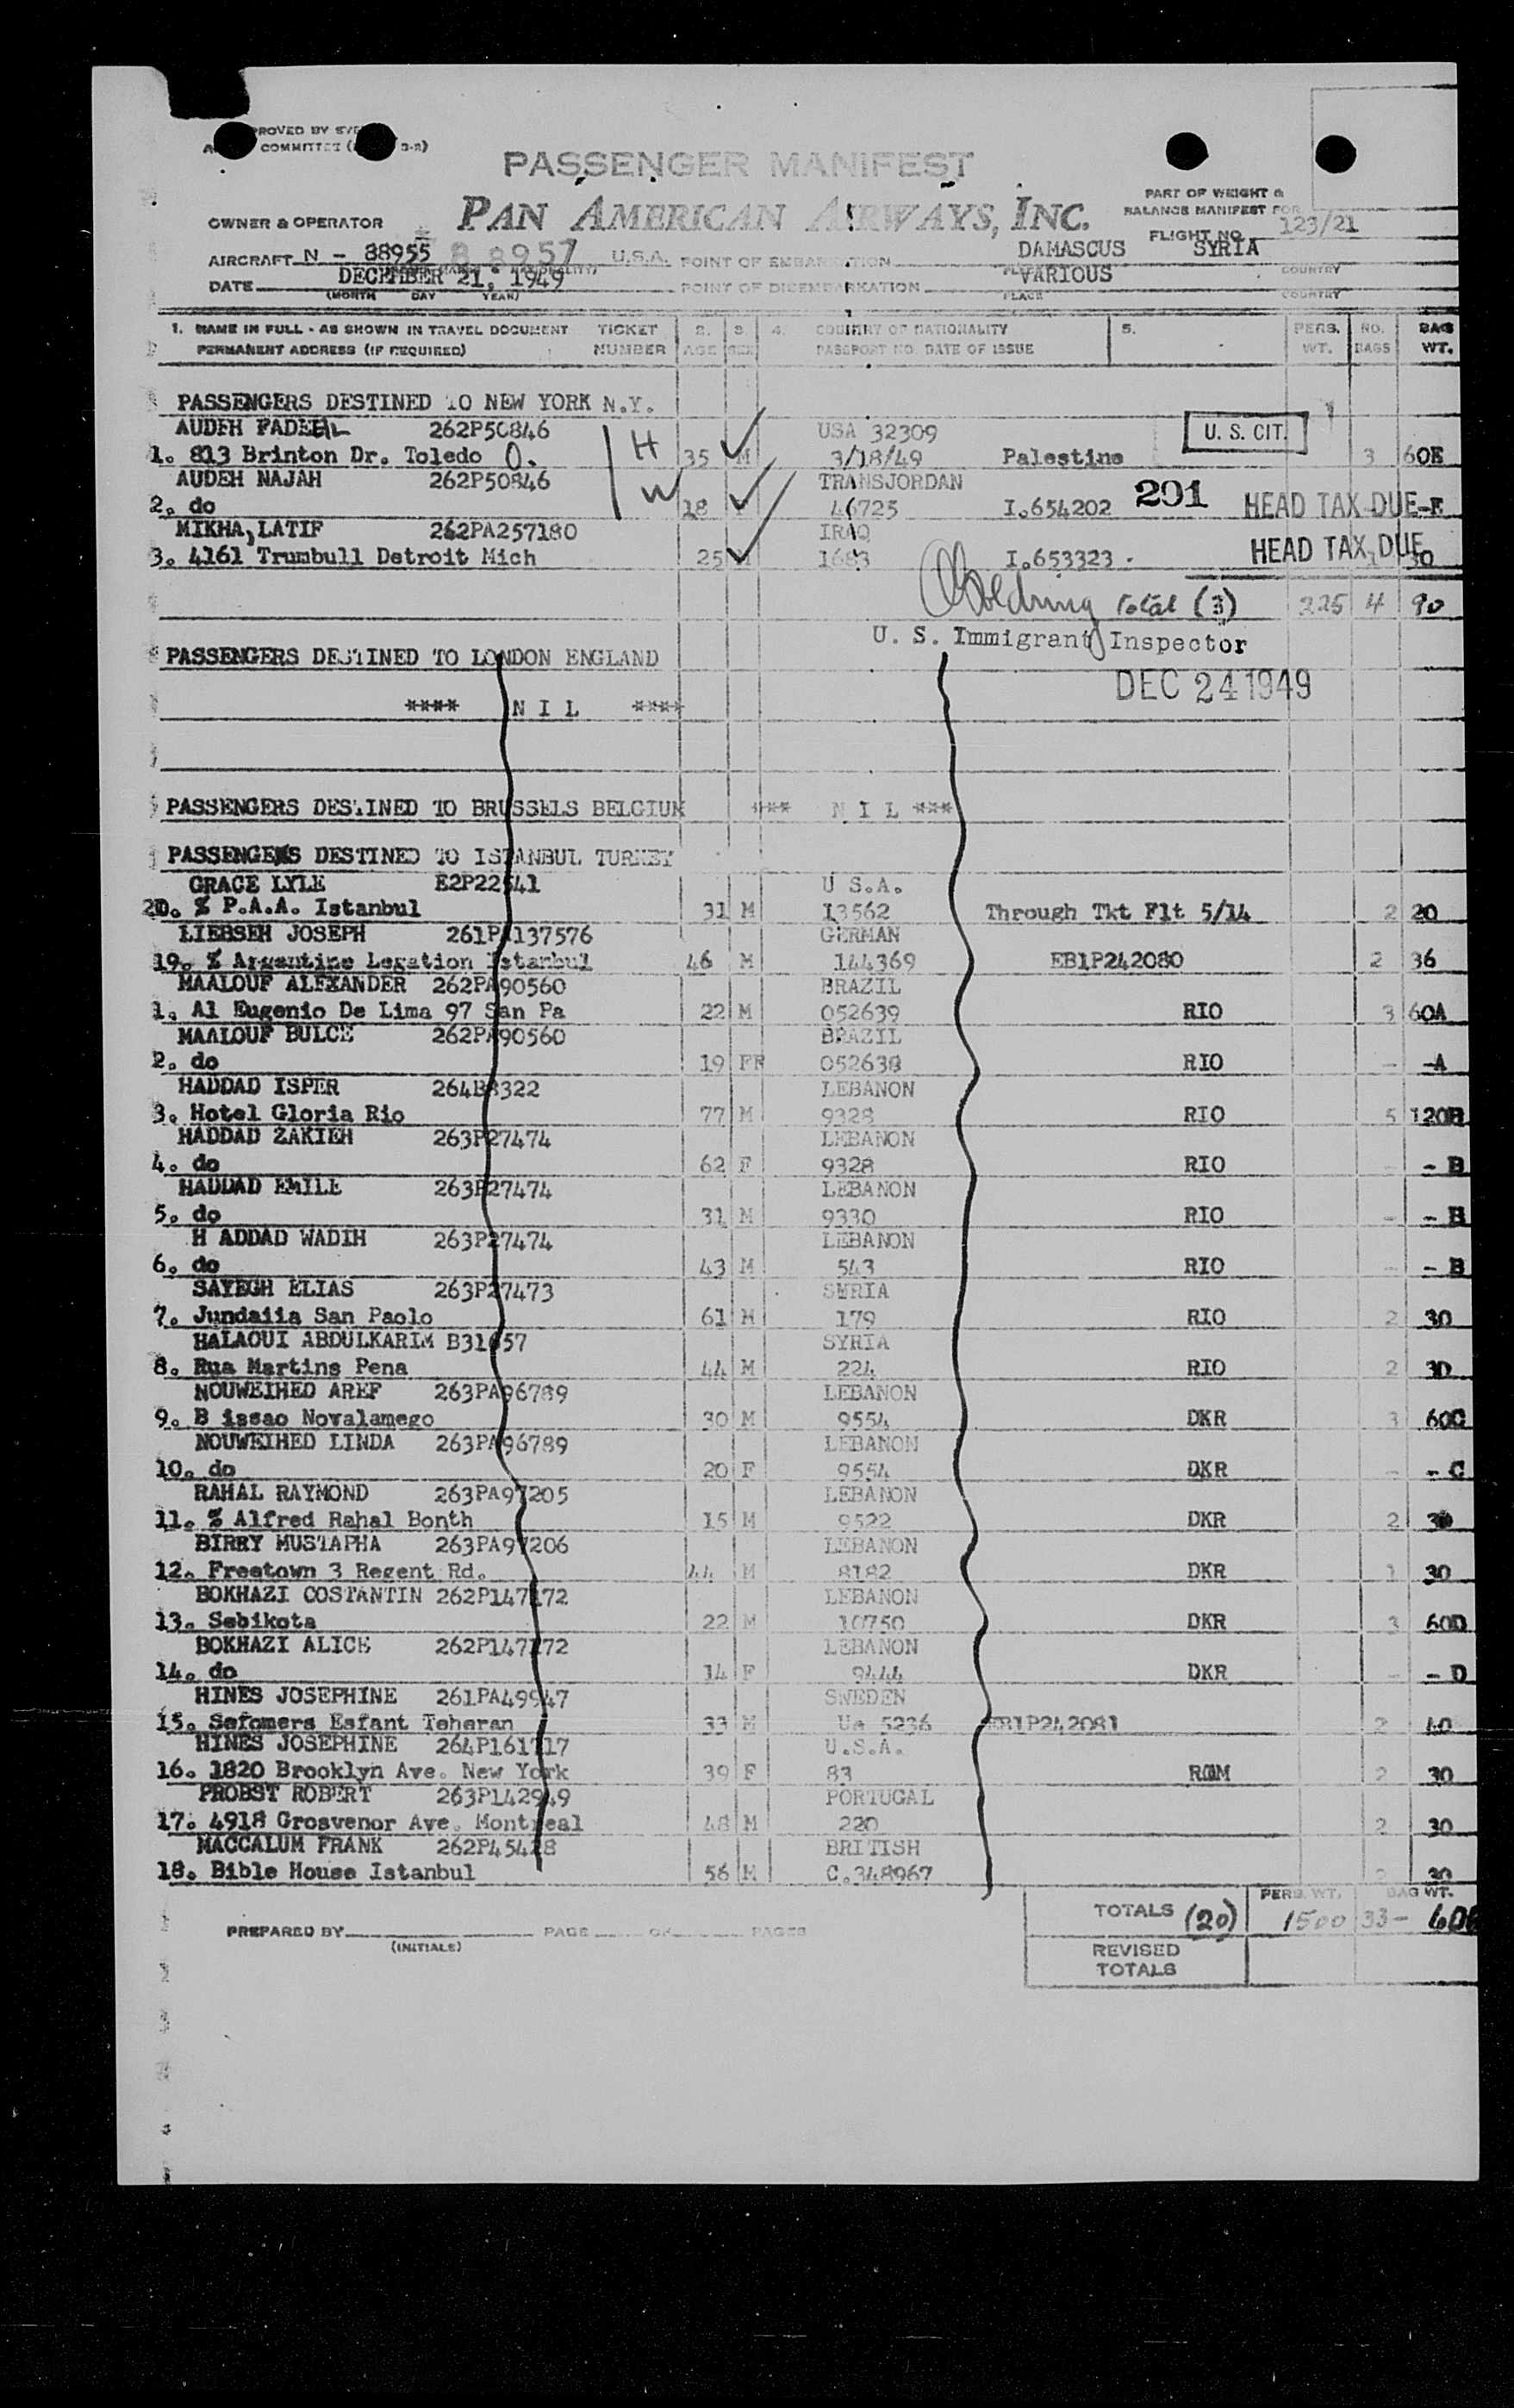 PASSENGER MANIFEST
PAN AMERICAN AIRWAYS, INC.
PART OF WEIGHT &
BALANCE MANIFEST FOR
OWNER & OPERATOR
FLIGHT NO. 123/21
AIRCRAFT N - 88955 88957 U.S.A. POINT OF EMBARKATION DAMASCUS SYRIA
PLACE COUNTRY
DATE DECEMBER 21, 1949 POINT OF DISEMBARKATION VARIOUS
(MONTH DAY YEAR) PLACE COUNTRY
1. NAME IN FULL - AS SHOWN IN TRAVEL DOCUMENT TICKET 2. 3. 4. COUNTRY OF NATIONALITY 5. PERS. NO. BAG
PERMANENT ADDRESS (IF REQUIRED) NUMBER AGE SEX PASSPORT NO. DATE OF ISSUE WT. BAGS WT.
PASSENGERS DESTINED TO NEW YORK N.Y.
AUDEH FADEEL 262P50846 USA 32309 U. S. CIT.
1. 813 Brinton Dr. Toledo O. H 35 M 3/18/49 Palestine 3 60E
AUDEH NAJAH 262P50846 TRANSJORDAN
2. do W 18 46725 I.654202 201 HEAD TAX DUE -E
MIKHA, LATIF 262PA257180 IRAQ
3. 4161 Trumbull Detroit Mich 25 M 1683 I.653323 HEAD TAX DUE 1 30
Total (3) 225 4 90
U. S. Immigrant Inspector
PASSENGERS DESTINED TO LONDON ENGLAND
DEC 24 1949
**** N I L ****
PASSENGERS DESTINED TO BRUSSELS BELGIUM *** N I L ***
PASSENGERS DESTINED TO ISTANBUL TURKEY
GRACE LYLE E2P22541 U S.A.
20. % P.A.A. Istanbul 31 M 13562 Through Tkt Flt 5/14 2 20
LIEBSEH JOSEPH 261PA137576 GERMAN
19. % Argentine Legation Istanbul 46 M 144369 EB1P242080 2 36
MAALOUF ALEXANDER 262PA90560 BRAZIL
1. Al Eugenio De Lima 97 San Pa 22 M 052639 RIO 3 60A
MAALOUF BULCE 262PA90560 BRAZIL
2. do 19 FF 052638 RIO - -A
HADDAD ISPER 264B8322 LEBANON
3. Hotel Gloria Rio 77 M 9328 RIO 5 120B
HADDAD ZAKIEH 263P27474 LEBANON
4. do 62 F 9328 RIO - - B
HADDAD EMILE 263P27474 LEBANON
5. do 31 M 9330 RIO - - B
H ADDAD WADIH 263P27474 LEBANON
6. do 43 M 543 RIO - - B
SAYEGH ELIAS 263P27473 SYRIA
7. Jundaiia San Paolo 61 M 179 RIO 2 30
HALAOUI ABDULKARIM B31657 SYRIA
8. Rua Martins Pena 44 M 224 RIO 2 30
NOUWEIHED AREF 263PA96789 LEBANON
9. B issao Novalamego 30 M 9554 DKR 3 60C
NOUWEIHED LINDA 263PA96789 LEBANON
10. do 20 F 9554 DKR - - C
RAHAL RAYMOND 263PA97205 LEBANON
11. % Alfred Rahal Bonth 15 M 9522 DKR 2 30
BIRRY MUSTAPHA 263PA97206 LEBANON
12. Freetown 3 Regent Rd. 44 M 8182 DKR 1 30
BOKHAZI COSTANTIN 262P147172 LEBANON
13. Sebikota 22 M 10750 DKR 3 60D
BOKHAZI ALICE 262P147172 LEBANON
14. do 14 F 9444 DKR - - D
HINES JOSEPHINE 261PA49947 SWEDEN
15. Sefomers Esfant Teheran 33 M Ua 5236 EB1P242081 2 40
HINES JOSEPHINE 264P161717 U.S.A.
16. 1820 Brooklyn Ave. New York 39 F 83 ROM 2 30
PROBST ROBERT 263P142949 PORTUGAL
17. 4918 Grosvenor Ave. Montreal 48 M 220 2 30
MACCALUM FRANK 262P45428 BRITISH
18. Bible House Istanbul 56 M C.348967 2 30
PERS. WT. BAG WT.
TOTALS (20) 1500 33 -
PREPARED BY PAGE OF PAGES
(INITIALS)
REVISED
TOTALS